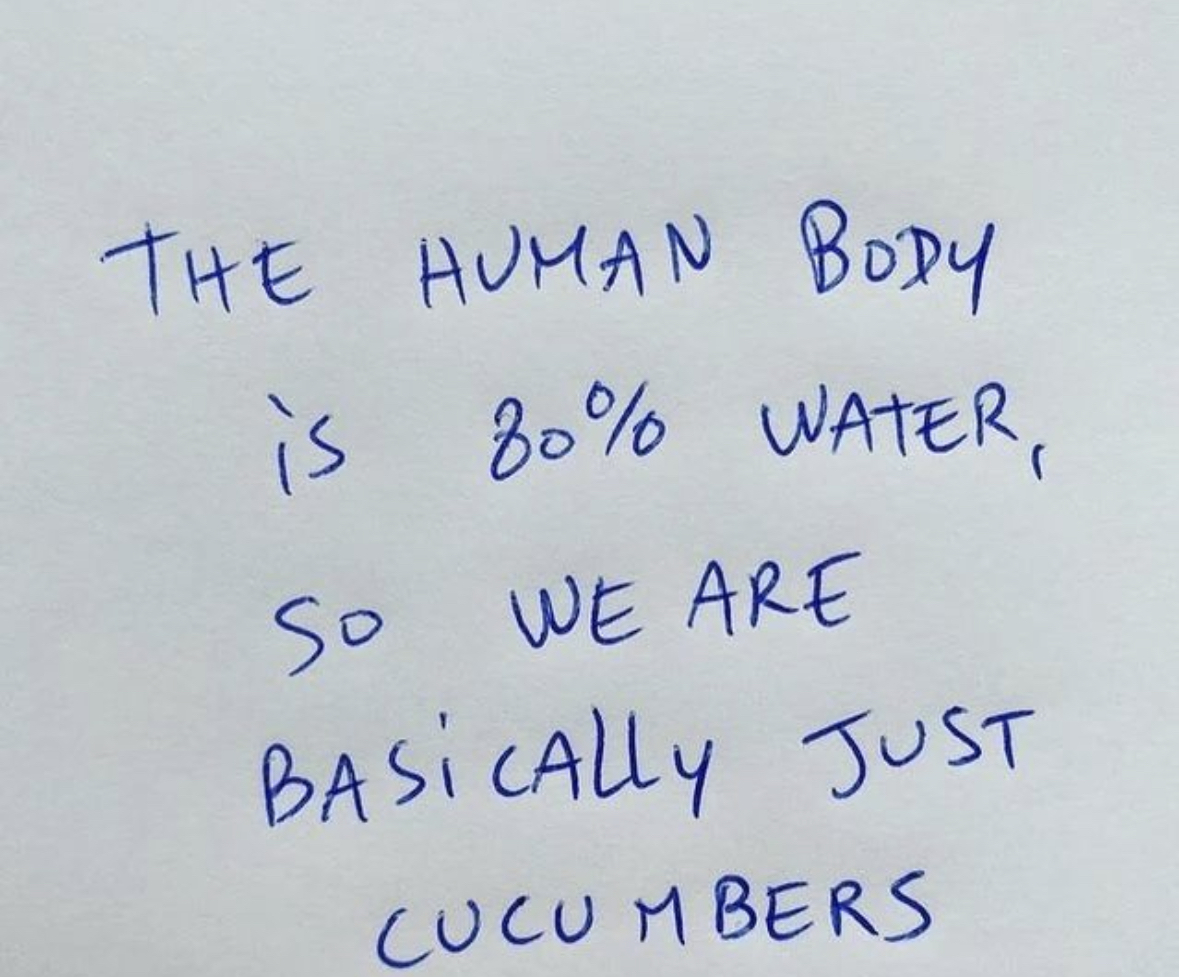 THE HUMAN BODY
is 80% WATER,
SO WE ARE
BASiCAlly JUST
CUCUMBERS